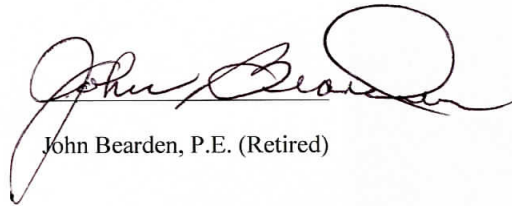 John Bearden
John Bearden, P.E. (Retired)